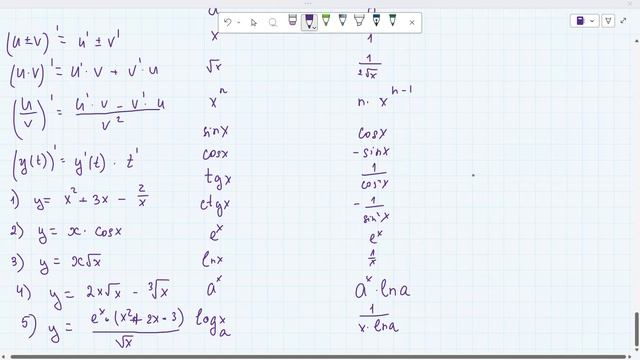 (u ± v)' = u' ± v'
(u · v)' = u' · v + v' · u
(u/v)' = (u' · v − v' · u)/v²
(y(t))' = y'(t) · t'
1) y = x² + 3x − 2/x
2) y = x · cosx
3) y = x√x
4) y = 2x√x − ³√x
5) y = eˣ · (x² + 2x − 3)/√x
x 1
√x 1/(2√x)
xⁿ n · xⁿ⁻¹
sinx cosx
cosx − sinx
tgx 1/cos²x
ctgx − 1/sin²x
eˣ eˣ
lnx 1/x
aˣ aˣ · lna
logₐx 1/(x · lna)